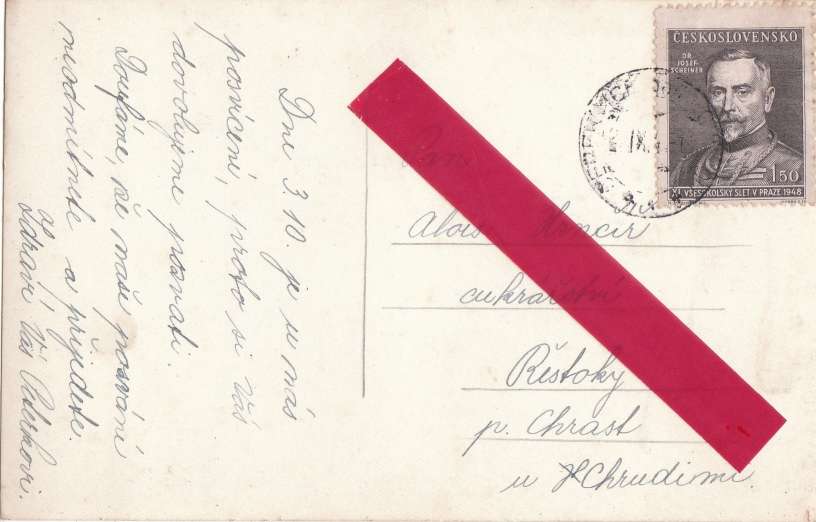 Dne 3.10. je u nás
posvícení, proto si Vás
dovolujeme pozvati.
Doufáme, že naše pozvání
neodmítnete a přijedete.
Zdraví Vás
ČESKOSLOVENSKO
DR.
JOSEF
SCHEINER
1.50
XI. VŠESOKOLSKÝ SLET V PRAZE 1948
Alois
cukrářství
Řestoky
p. Chrast
u Chrudimi